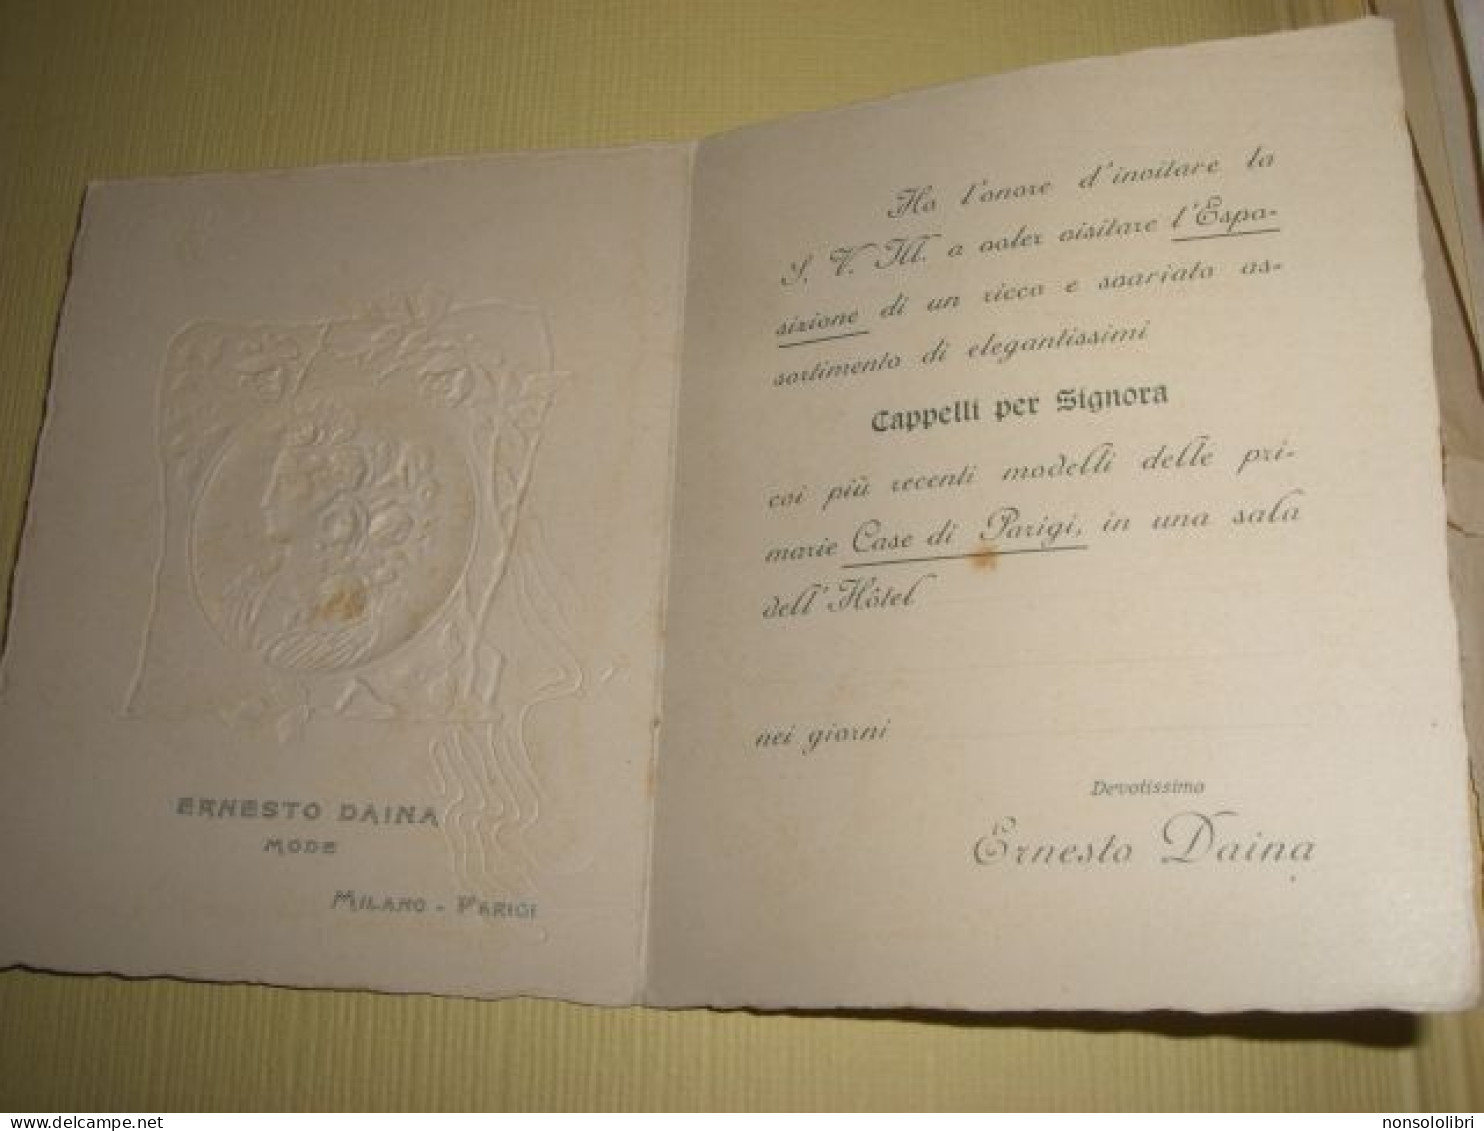 ERNESTO DAINA
MODE
MILANO - PARIGI
Ho l'onore d'invitare la
S. V. Ill. a voler visitare l'Espo-
sizione di un ricco e svariato as-
sortimento di elegantissimi
Cappelli per Signora
coi più recenti modelli delle pri-
marie Case di Parigi, in una sala
dell'Hôtel
nei giorni
Devotissimo
Ernesto Daina
delcampe.net
nonsololibri